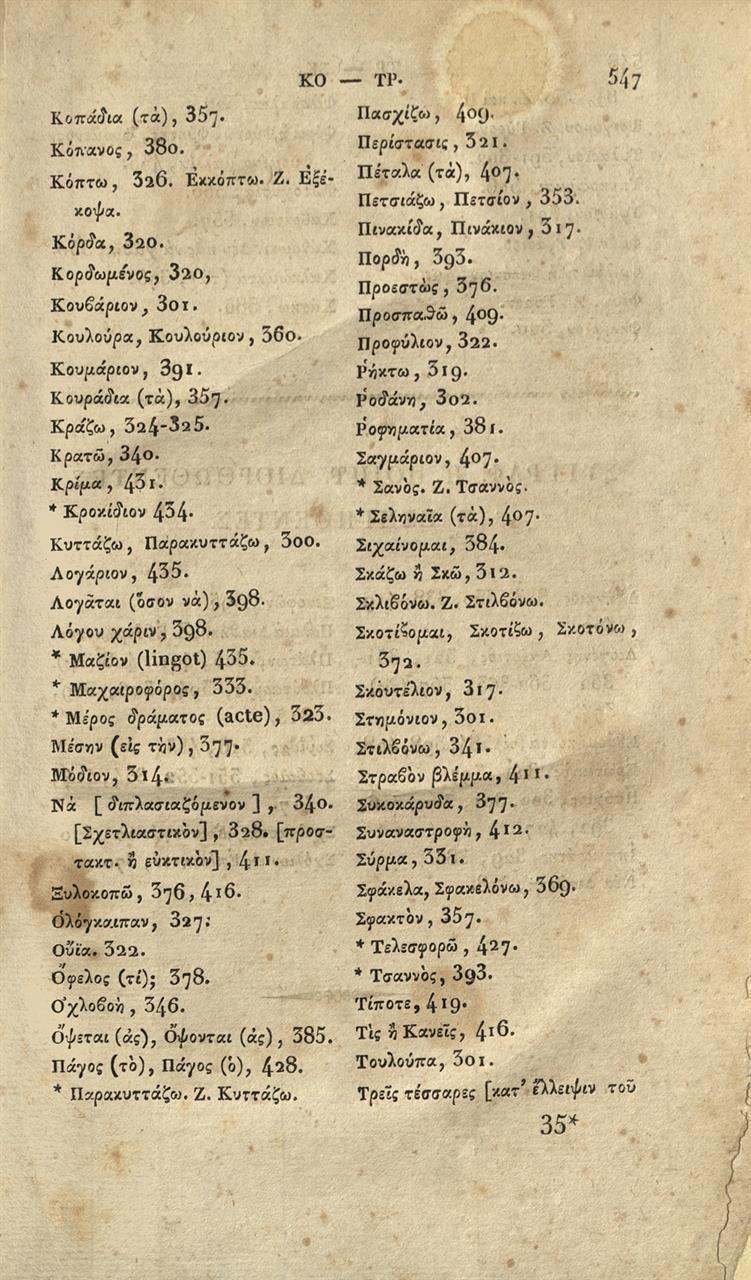 ΚΟ — ΤΡ. 547
Κοπάδια (τὰ), 357.
Κόπανος, 380.
Κόπτω, 326. Ἐκκόπτω. Ζ. Ἐξέ-
κοψα.
Κόρδα, 320.
Κορδωμένος, 320,
Κουβάριον, 301.
Κουλούρα, Κουλούριον, 360.
Κουμάριον, 391.
Κουράδια (τὰ), 357.
Κράζω, 324-325.
Κρατῶ, 340.
Κρίμα, 431.
* Κροκίδιον 434.
Κυττάζω, Παρακυττάζω, 300.
Λογάριον, 435.
Λογᾶται (ὅσον νὰ), 398.
Λόγου χάριν, 398.
* Μαζίον (lingot) 435.
* Μαχαιροφόρος, 333.
* Μέρος δράματος (acte), 323.
Μέσην (εἰς τὴν), 377.
Μόδιον, 314.
Νὰ [διπλασιαζόμενον], 340.
[Σχετλιαστικὸν], 328. [προσ-
τακτ. ἢ εὐκτικὸν], 411.
Ξυλοκοπῶ, 376, 416.
Ὁλόγκαιπαν, 327:
Οὔϊα. 322.
Ὄφελος (τί); 378.
Ὀχλοβοὴ, 346.
Ὄψεται (ἀς), Ὄψονται (ἀς), 385.
Πάγος (τὸ), Πάγος (ὁ), 428.
* Παρακυττάζω. Ζ. Κυττάζω.
Πασχίζω, 409.
Περίστασις, 321.
Πέταλα (τὰ), 407.
Πετσιάζω, Πετσίον, 353.
Πινακίδα, Πινάκιον, 317.
Πορδὴ, 393.
Προεστὼς, 376.
Προσπαθῶ, 409.
Προφύλιον, 322.
Ῥήκτω, 319.
Ῥοδάνη, 302.
Ῥοφηματία, 381.
Σαγμάριον, 407.
* Σανὸς. Ζ. Τσαννὸς.
* Σεληναῖα (τὰ), 407.
Σιχαίνομαι, 384.
Σκάζω ἢ Σκῶ, 312.
Σκλιβόνω. Ζ. Στιλβόνω.
Σκοτίζομαι, Σκοτίζω, Σκοτόνω,
372.
Σκουτέλιον, 317.
Στημόνιον, 301.
Στιλβόνω, 341.
Στραβὸν βλέμμα, 411.
Συκοκάρυδα, 377.
Συναναστροφὴ, 412.
Σύρμα, 331.
Σφάκελα, Σφακελόνω, 369.
Σφακτὸν, 357.
* Τελεσφορῶ, 427.
* Τσαννὸς, 393.
Τίποτε, 419.
Τὶς ἢ Κανεῖς, 416.
Τουλούπα, 301.
Τρεῖς τέσσαρες [κατ' ἔλλειψιν τοῦ
35*